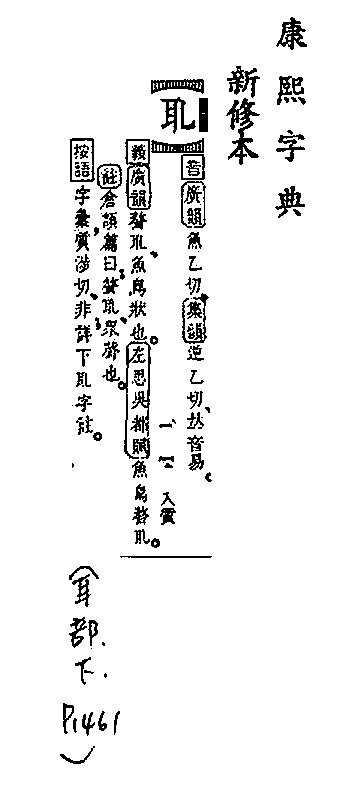 康熙字典
新修本
耴
音 廣韻 魚乙切、集韻 逆乙切、𠀤音易。
一 一 入質
義 廣韻 聱耴、魚鳥狀也。左思吳都賦 魚鳥聱耴。
註 倉頡篇曰、聱耴、衆聲也。
按語 字彙質涉切、非、詳下耴字註。
(耳部.下.P1461)